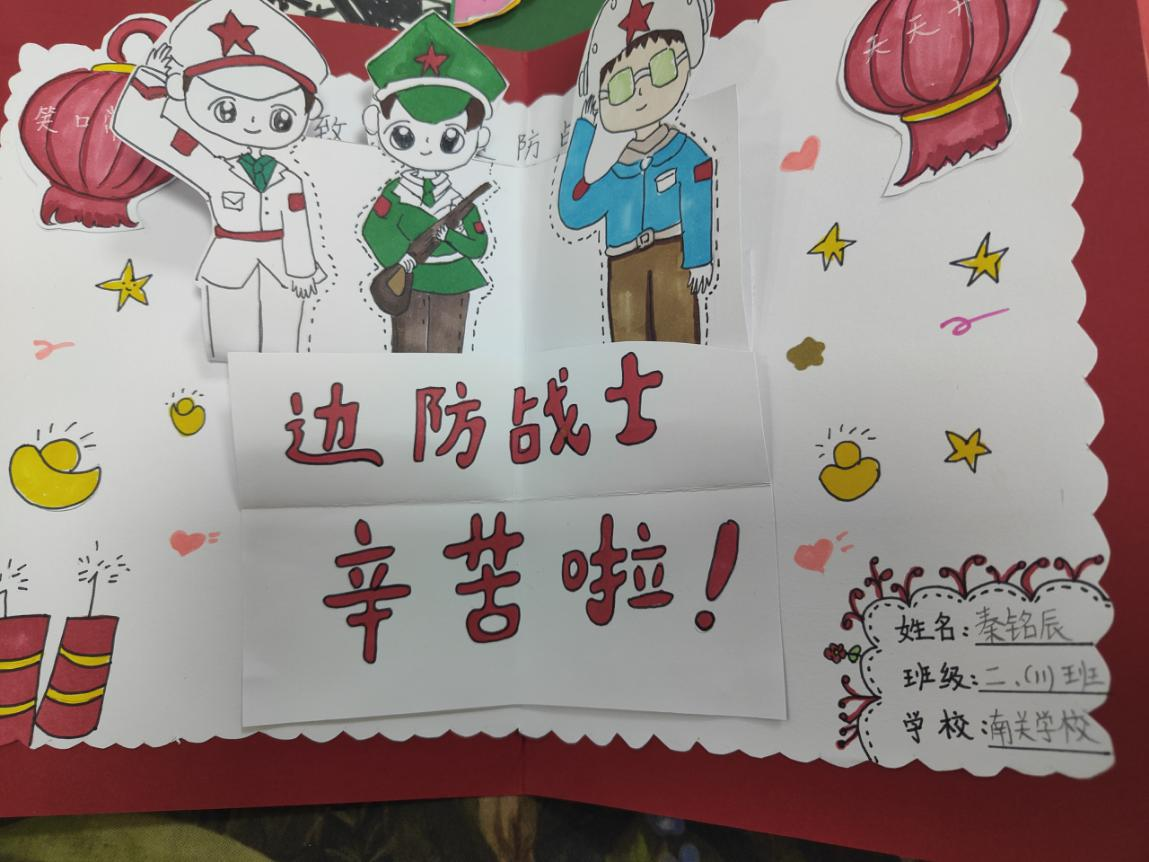 笑口常
天天开
致
防
边防战士
辛苦啦!
姓名:秦铭辰
班级:二.(11)班
学校:南关学校